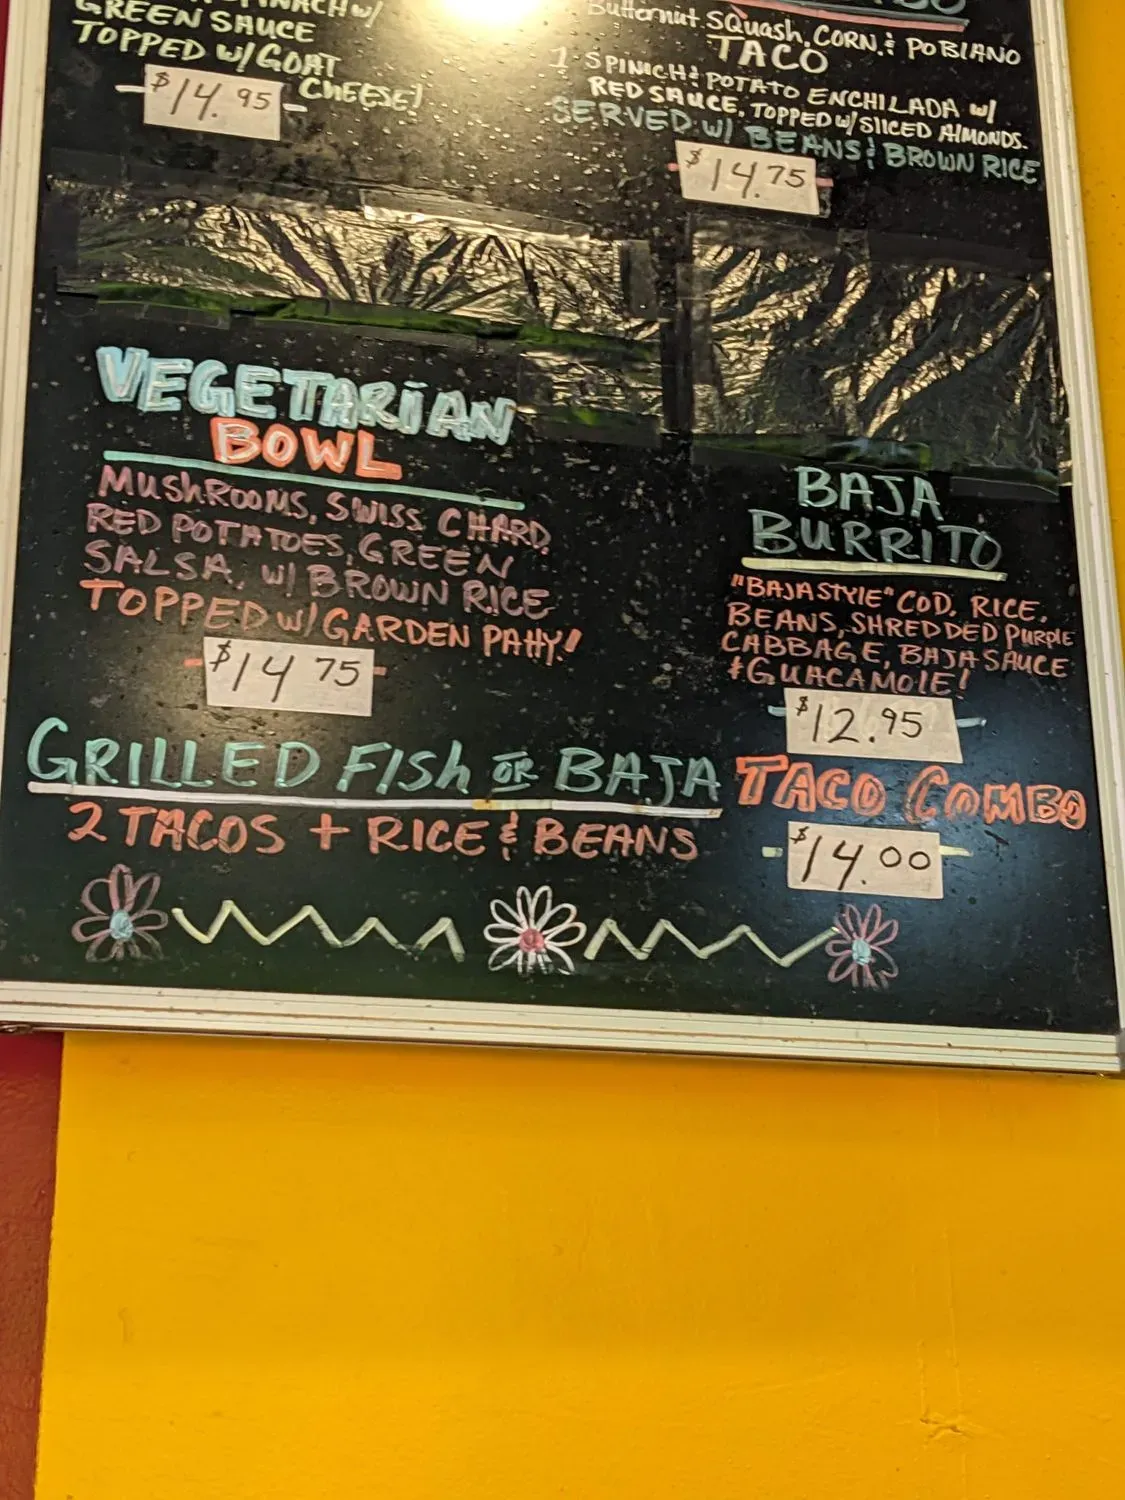 GREEN SAUCE
TOPPED W/ GOAT
CHEESE!
$14.95
Butternut SQuash, CORN, & POBLANO
TACO
1 SPINICH & POTATO ENCHILADA W/
RED SAUCE, TOPPED W/ SlICED AlMONDS.
SERVED W/ BEANS & BROWN RICE
$14.75
VEGETARIAN
BOWL
MUShROOMS, SWISS CHARD,
RED POTATOES, GREEN
SALSA, W/ BROWN RICE
TOPPED W/ GARDEN PAttY!
$14 75
BAJA
BURRITO
"BAJA STYlE" COD, RICE,
BEANS, SHREDDED PURPlE
CABBAGE, BAJA SAUCE
& GUACAMOlE!
$12.95
GRILLED FISh OR BAJA TACO COMBO
2 TACOS + RICE & BEANS
$14.00